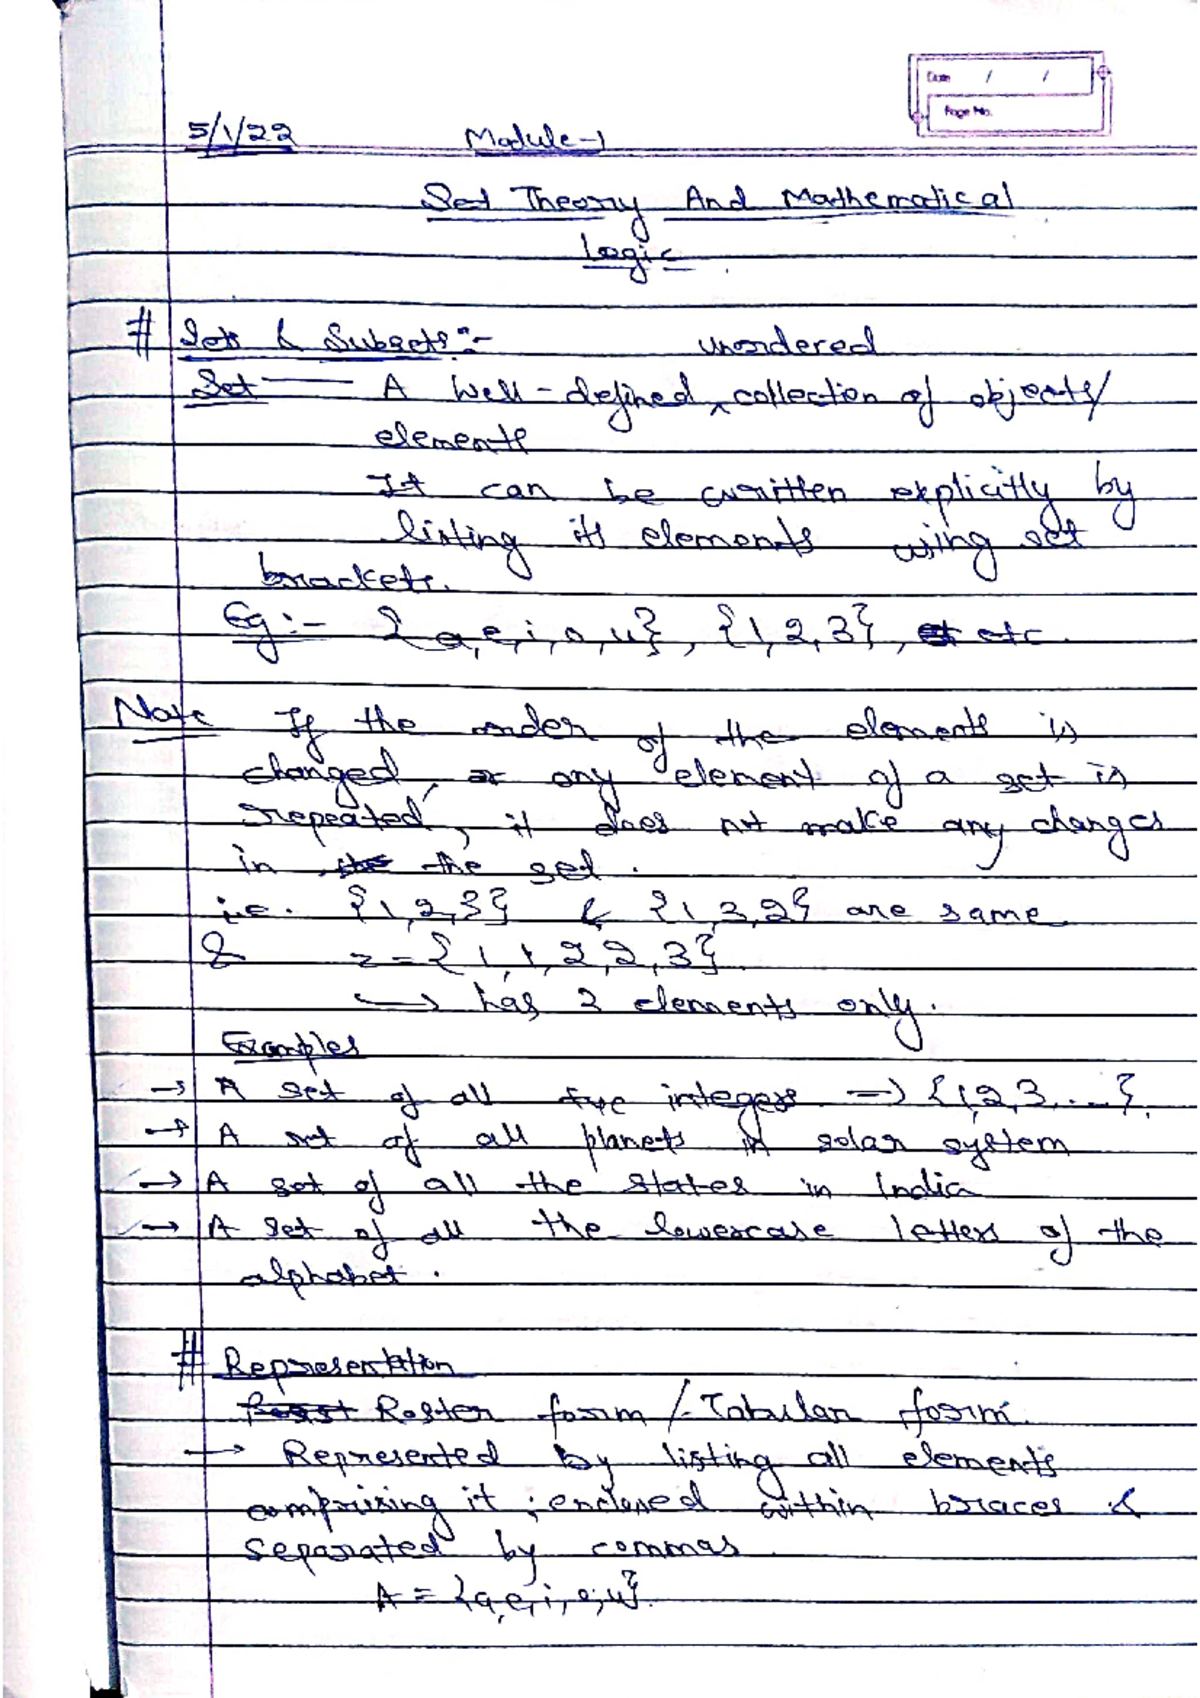 Date / /
Page No.
5/1/22 Module-1
Set Theory And Mathematical
Logic
# Sets & Subsets :-
unordered
Set — A well-defined ^ collection of objects/
elements
It can be written explicitly by
listing its elements using set
brackets.
Eg :- {a, e, i, o, u}, {1, 2, 3}, et etc.
Note If the order of the elements is
changed, or any element of a set is
repeated, it does not make any changes
in the the set.
i.e. {1, 2, 3} & {1, 3, 2} are same
& z = {1, 1, 2, 2, 3}
↪ has 3 elements only.
Examples
→ A set of all +ve integers => {1, 2, 3, ...}.
→ A set of all planets in solar system
→ A set of all the states in India
→ A set of all the lowercase letters of the
alphabet.
# Representation
Roster form / Tabular form.
→ Represented by listing all elements
comprising it ; enclosed within braces &
separated by commas
A = {a, e, i, o, u}.